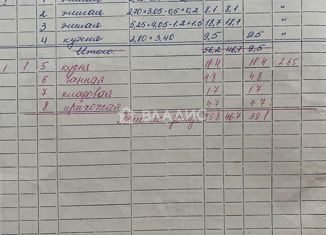 2 жилая 2,70*3,05-0,5*0,2 8,1 8,1 "
3 жилая 5,25*4,05-1,2*1,5 18,7 18,7 "
4 кухня 2,80*3,40 9,5 9,5 "
Итого: 56,2 46,7 9,5
1 1 5 кухня 18.4 18.4 2.65
6 ванная 4.8 4.8
7 кладовая 1.7 1.7
8 прихожая 4.7 4.7
46.7 39.1
ВЛАДИС